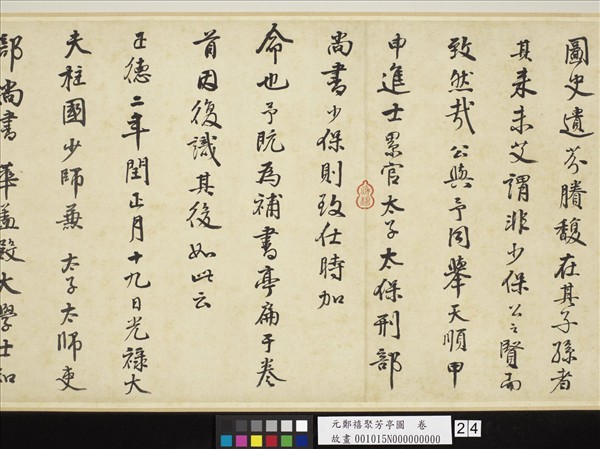 圖史遺芬賸馥在其子孫者
其來未艾謂非少保公之賢而
致然哉公與予同舉天順甲
申進士累官太子太保刑部
尚書少保則致仕時加
命也予既為補書亭扁于卷
首因復識其後如此云
正德二年閏正月十九日光祿大
夫柱國少師兼太子太師吏
部尚書華蓋殿大學士知
元鄭禧聚芳亭圖 卷
故畫 001015N000000000
24